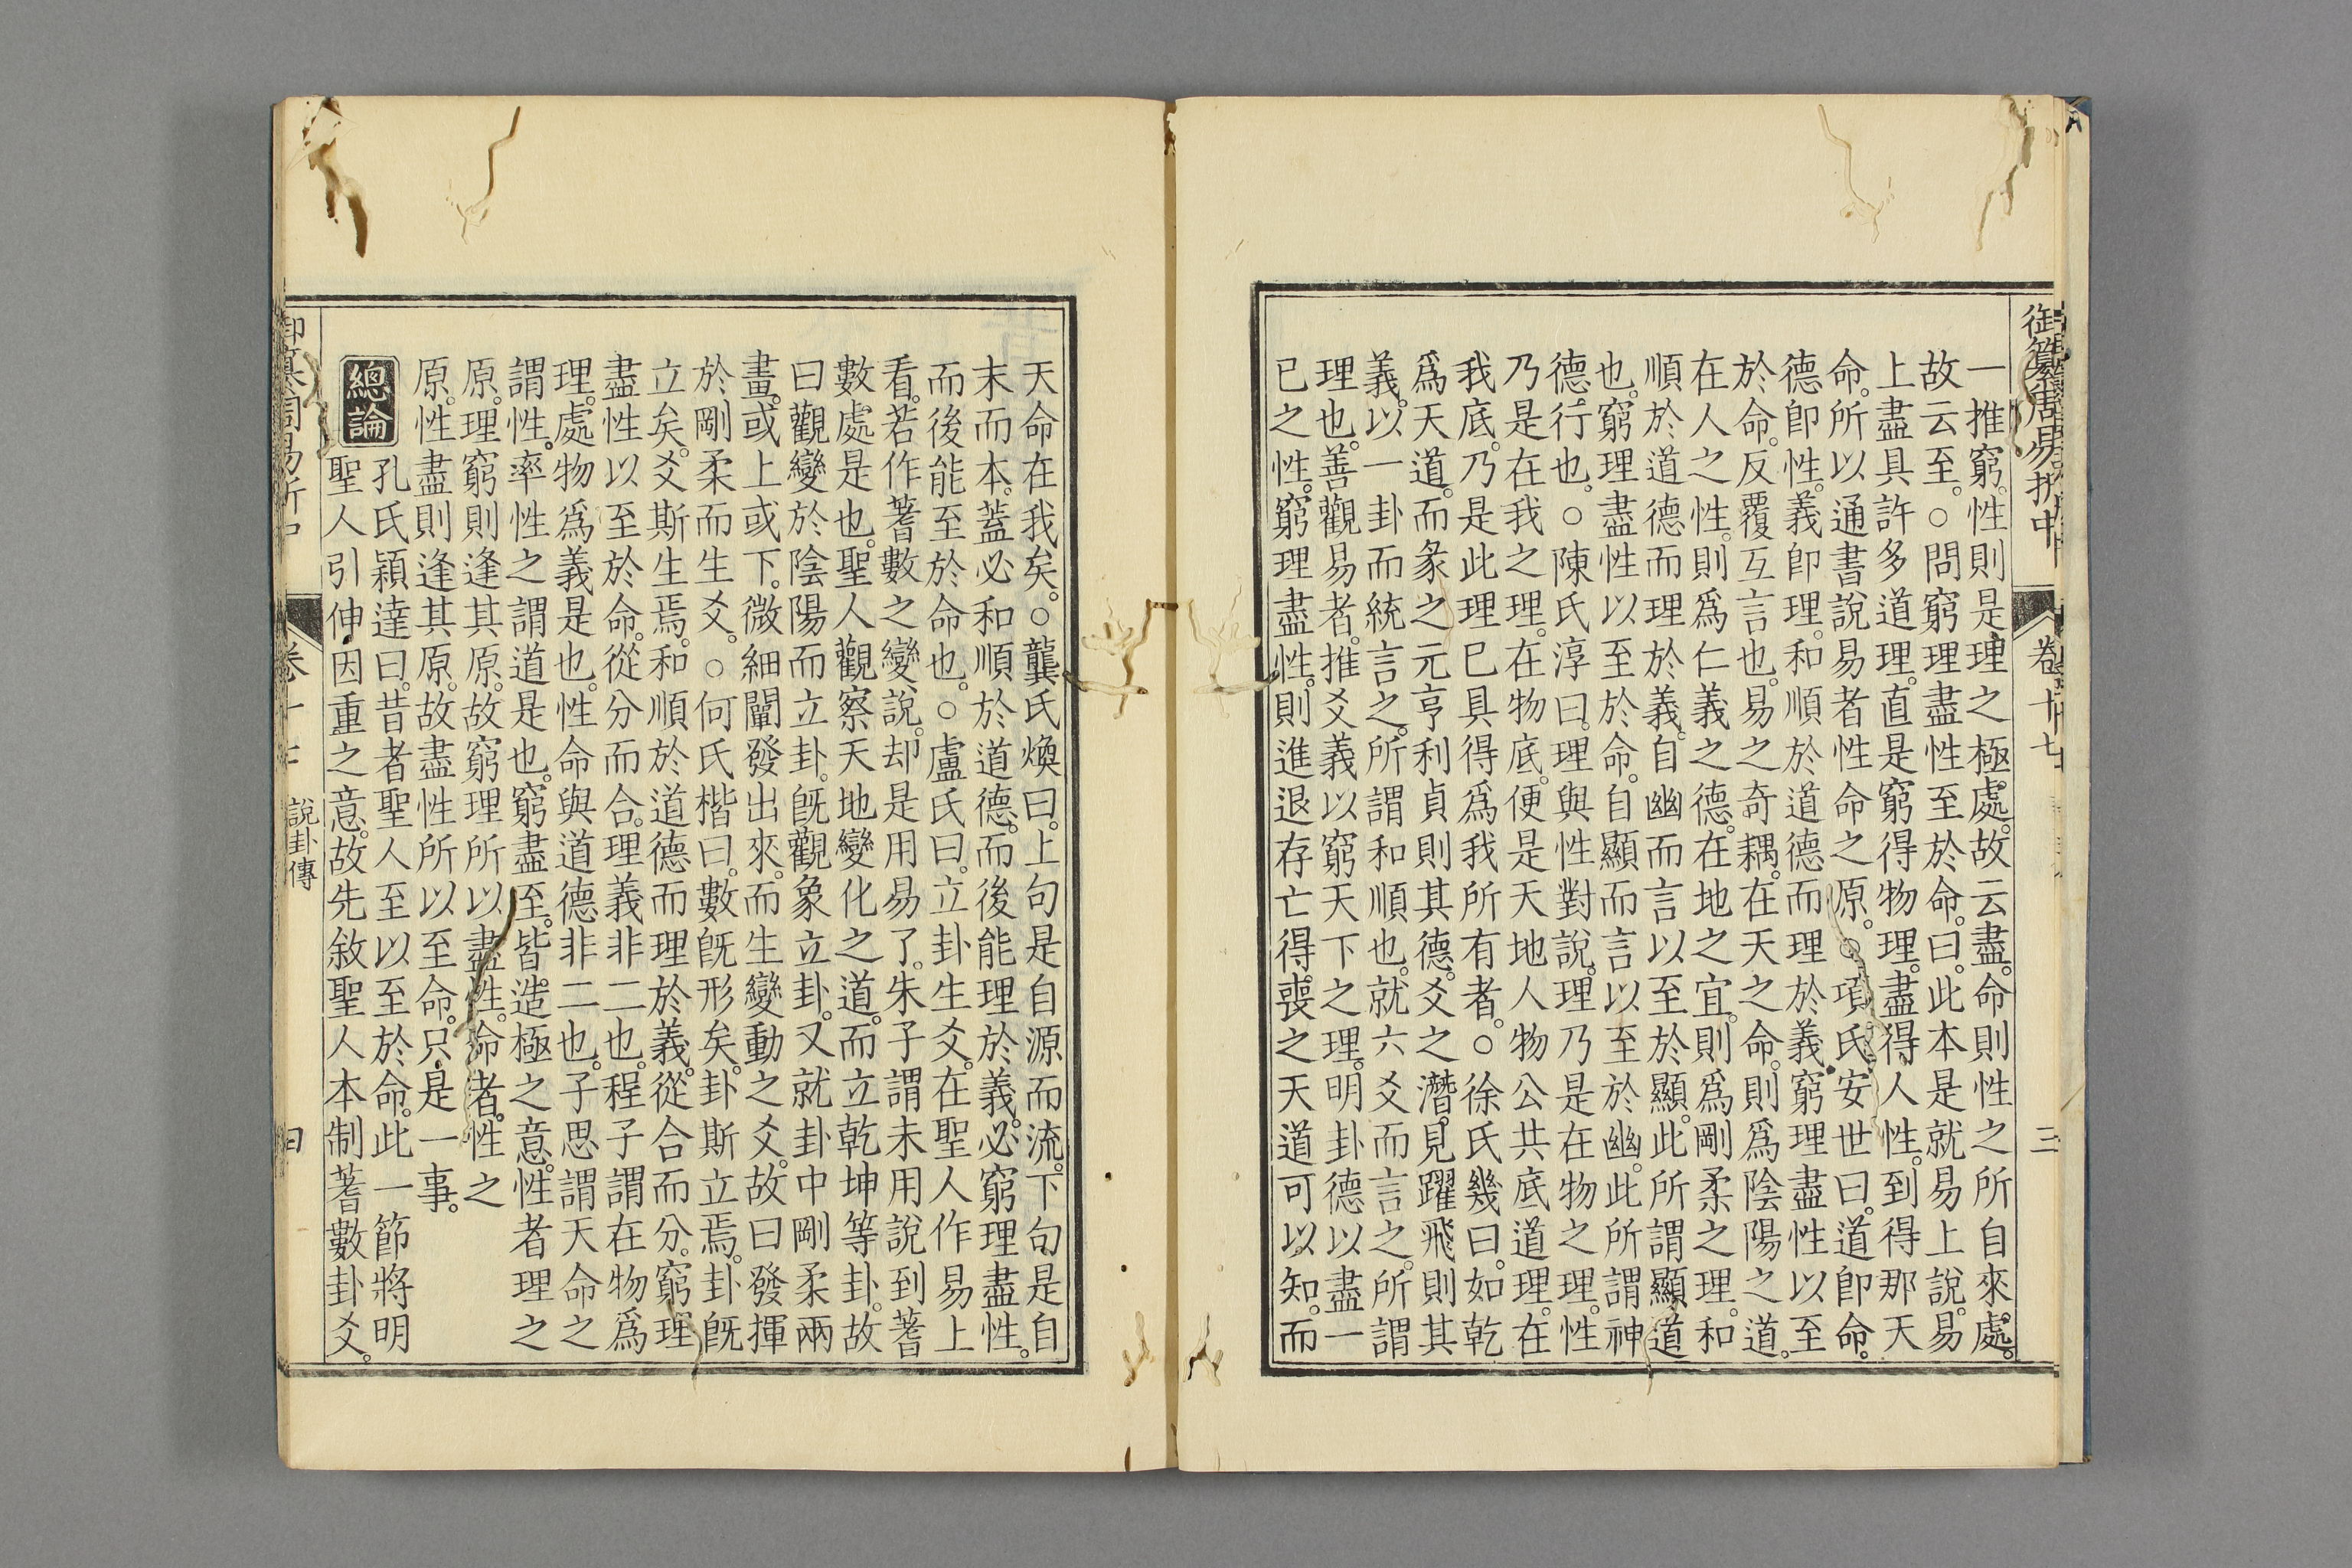 御纂周易折中
卷十七
三
一推窮。性則是理之極處。故云盡。命則性之所自來處。
故云至。○問窮理盡性至於命。曰。此本是就易上說。易
上盡具許多道理。直是窮得物理。盡得人性。到得那天
命。所以通書說易者性命之原。○項氏安世曰。道卽命。
德卽性。義卽理。和順於道德而理於義。窮理盡性以至
於命。反覆互言也。易之奇耦。在天之命。則爲陰陽之道。
在人之性。則爲仁義之德。在地之宜。則爲剛柔之理。和
順於道德而理於義。自幽而言以至於顯。此所謂顯道
也。窮理盡性以至於命。自顯而言以至於幽。此所謂神
德行也。○陳氏淳曰。理與性對說。理乃是在物之理。性
乃是在我之理。在物底。便是天地人物公共底道理。在
我底。乃是此理已具得爲我所有者。○徐氏幾曰。如乾
爲天道。而彖之元亨利貞則其德。爻之潛見躍飛則其
義。以一卦而統言之。所謂和順也。就六爻而言之。所謂
理也。善觀易者。推爻義以窮天下之理。明卦德以盡一
已之性。窮理盡性。則進退存亡得喪之天道可以知。而
天命在我矣。○龔氏煥曰。上句是自源而流。下句是自
末而本。蓋必和順於道德。而後能理於義。必窮理盡性。
而後能至於命也。○盧氏曰。立卦生爻。在聖人作易上
看。若作蓍數之變說。却是用易了。朱子謂未用說到蓍
數處是也。聖人觀察天地變化之道。而立乾坤等卦。故
曰觀變於陰陽而立卦。旣觀象立卦。又就卦中剛柔兩
畫。或上或下。微細闡發出來。而生變動之爻。故曰發揮
於剛柔而生爻。○何氏楷曰。數旣形矣。卦斯立焉。卦旣
立矣。爻斯生焉。和順於道德而理於義。從合而分。窮理
盡性以至於命。從分而合。理義非二也。程子謂在物爲
理。處物爲義是也。性命與道德非二也。子思謂天命之
謂性。率性之謂道是也。窮盡至。皆造極之意。性者理之
原。理窮則逢其原。故窮理所以盡性。命者。性之
原。性盡則逢其原。故盡性所以至命。只是一事。
總論 孔氏穎達曰。昔者聖人至以至於命。此一節將明
聖人引伸因重之意。故先敘聖人本制蓍數卦爻。
說卦傳